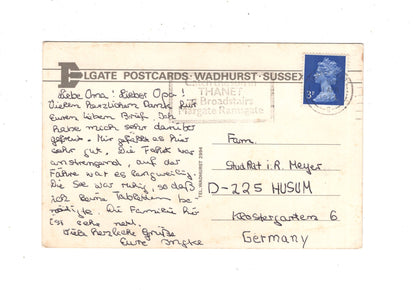 ELGATE POSTCARDS · WADHURST · SUSSEX
THANET
Broadstairs
Margate Ramsgate
3P
Liebe Oma! Lieber Opa!
Vielen herzlichen Dank für
Euren lieben Brief. Ich
habe mich sehr darüber
gefreut. Mir gefällt es hier
sehr gut. Die Fahrt war
anstrengend, auf der
Fähre war es langweilig.
Die See war ruhig, so daß
ich keine Tabletten be-
nötigte. Die Familie hier
ist sehr nett.
Viele herzliche Grüße
Eure
TEL. WADHURST 2994
Fam.
StudRat i.R. Meyer
D-225 HUSUM
Klostergarten 6
Germany